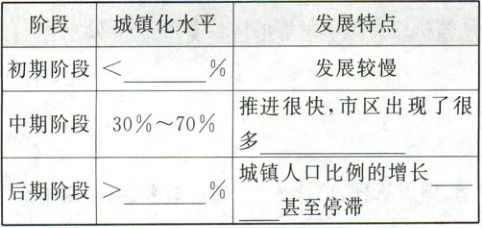 阶段 城镇化水平 发展特点
初期阶段 <______% 发展较慢
中期阶段 30%～70% 推进很快,市区出现了很
多__________
后期阶段 >______% 城镇人口比例的增长___
___甚至停滞